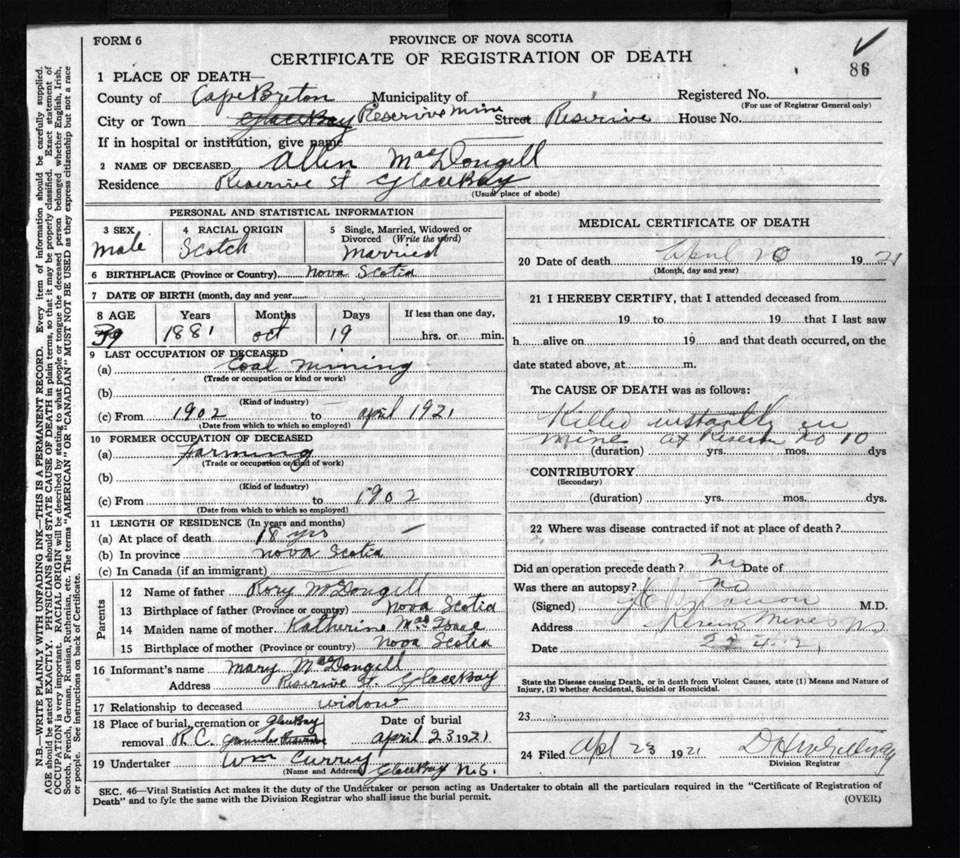 FORM 6
PROVINCE OF NOVA SCOTIA
CERTIFICATE OF REGISTRATION OF DEATH
86
1 PLACE OF DEATH—
County of Cape Breton Municipality of Registered No.
(For use of Registrar General only)
City or Town Glace Bay Reserive Mine Street Reserive House No.
If in hospital or institution, give name
2 NAME OF DECEASED Allen MacDongill
Residence Reserive St Glace Bay
(Usual place of abode)
PERSONAL AND STATISTICAL INFORMATION
3 SEX 4 RACIAL ORIGIN 5 Single, Married, Widowed or Divorced (Write the word)
Male Scotch Married
6 BIRTHPLACE (Province or Country) Nova Scotia
7 DATE OF BIRTH (month, day and year
8 AGE Years Months Days If less than one day,
39 1881 oct 19 hrs. or min.
9 LAST OCCUPATION OF DECEASED
(a) Coal mining
(Trade or occupation or kind or work)
(b)
(Kind of industry)
(c) From 1902 to april 1921
(Date from which to which so employed)
10 FORMER OCCUPATION OF DECEASED
(a) farming
(Trade or occupation or kind of work)
(b)
(Kind of industry)
(c) From to 1902
(Date from which to which so employed)
11 LENGTH OF RESIDENCE (In years and months)
(a) At place of death 18 yrs
(b) In province Nova Scotia
(c) In Canada (if an immigrant)
Parents
12 Name of father Rory McDongill
13 Birthplace of father (Province or country) Nova Scotia
14 Maiden name of mother Katherine MacIsaac
15 Birthplace of mother (Province or country) Nova Scotia
16 Informant's name Mary MacDongill
Address Reserive St. Glace Bay
17 Relationship to deceased widow
18 Place of burial, cremation or removal R.C. Glace Bay Date of burial april 23 1921
19 Undertaker Wm Curry
(Name and Address) Glace Bay N.S.
MEDICAL CERTIFICATE OF DEATH
20 Date of death April 20 1921
(Month, day and year)
21 I HEREBY CERTIFY, that I attended deceased from
19 to 19 that I last saw
h alive on 19 and that death occurred, on the
date stated above, at m.
The CAUSE OF DEATH was as follows:
Killed instantly in
mine at 10
(duration) yrs. mos. dys
CONTRIBUTORY
(Secondary)
(duration) yrs. mos. dys.
22 Where was disease contracted if not at place of death?
Did an operation precede death? no Date of
Was there an autopsy? no
(Signed) M.D.
Address Mines NS
Date
State the Disease causing Death, or in death from Violent Causes, state (1) Means and Nature of
Injury, (2) whether Accidental, Suicidal or Homicidal.
23
24 Filed Apl 23 1921
Division Registrar
SEC. 46—Vital Statistics Act makes it the duty of the Undertaker or person acting as Undertaker to obtain all the particulars required in the "Certificate of Registration of
Death" and to fyle the same with the Division Registrar who shall issue the burial permit.
(OVER)
N.B.—WRITE PLAINLY WITH UNFADING INK—THIS IS A PERMANENT RECORD. Every item of information should be carefully supplied.
AGE should be stated EXACTLY. PHYSICIANS should STATE CAUSE OF DEATH in plain terms, so that it may be properly classified. Exact statement of
OCCUPATION is very important. RACIAL ORIGIN will be described by stating to what people or tongue the deceased person belonged, whether English, Irish,
Scotch, French, German, Russian, Ruthenian, etc. The terms "AMERICAN" OR "CANADIAN" MUST NOT BE USED as they express citizenship but not a race
or people. See instructions on back of Certificate.